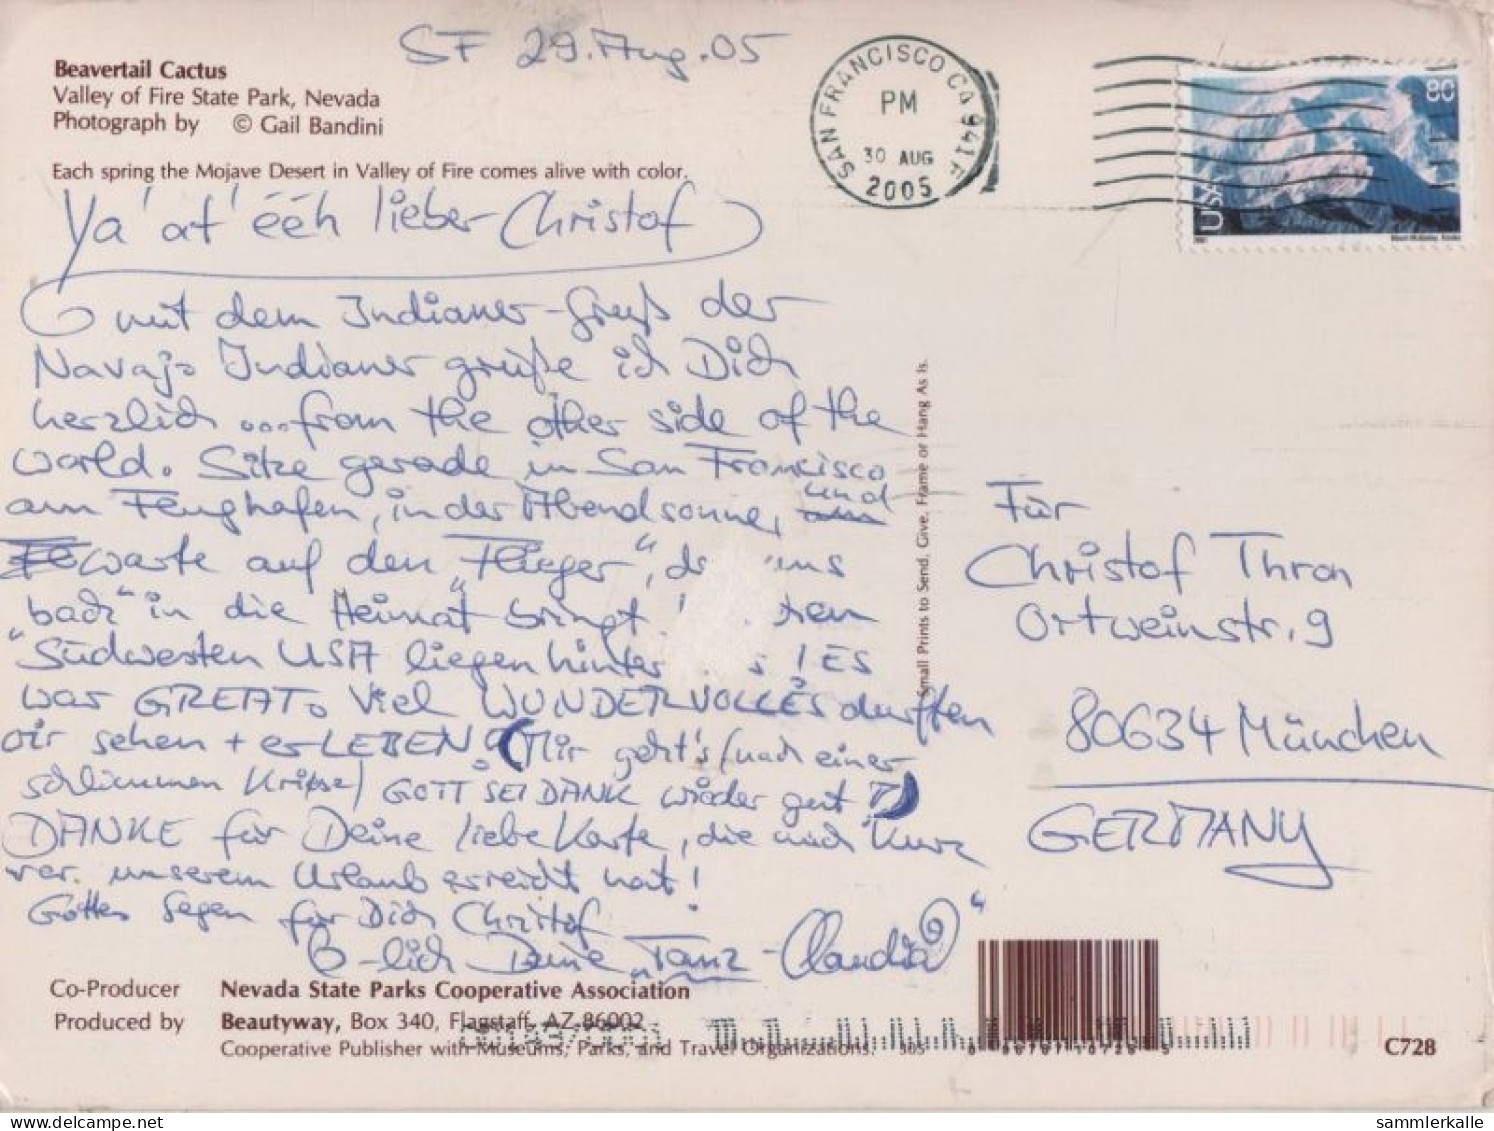 SF 29. Aug. 05
Beavertail Cactus
Valley of Fire State Park, Nevada
Photograph by © Gail Bandini
Each spring the Mojave Desert in Valley of Fire comes alive with color.
SAN FRANCISCO CA 941
PM
30 AUG
2005
80
USA
Ya' at' ééh lieber Christof
mit dem Indianer-Gruß der
Navajo Indianer grüße ich Dich
herzlich ... from the other side of the
world. Sitze gerade in San Francisco
am Flughafen, in der Abendsonne, und
warte auf den "Flieger", uns
back" in die Heimat bringt
"Südwesten USA liegen hinter ! ES
war GREAT. Viel WUNDERVOLLES durften
wir sehen + erLEBEN! (Mir geht's (nach einer
schlimmen Krise) GOTT SEI DANK wieder gut!)
DANKE für Deine liebe Karte, die mich kurz
vor unserem Urlaub erreicht hat!
Gottes Segen für Dich Christof
-lich Deine "Tanz-Claudia"
Small Prints to Send, Give, Frame or Hang As Is.
Für
Christof Thron
Ortweinstr. 9
80634 München
GERMANY
Co-Producer Nevada State Parks Cooperative Association
Produced by Beautyway, Box 340, Flagstaff, AZ 86002
Cooperative Publisher with Museums, Parks, and Travel Organizations. 305
C728
sammlerkalle